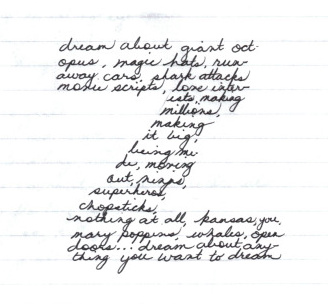 dream about giant oct-
opus, magic hats, run-
away cars, shark attacks
movie scripts, love inter-
ests, making
millions,
making
it big,
being mi
de, moving
out, ninjas,
superheros,
chopsticks,
nothing at all, kansas, you,
mary poppins, whales, open
doors... dream about any-
thing you want to dream